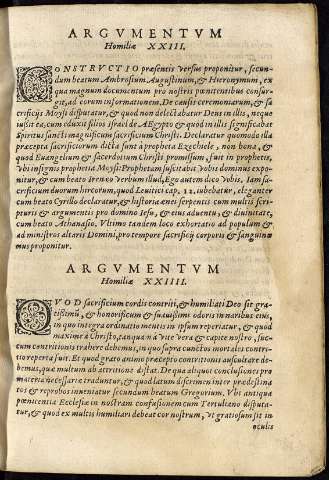 ARGVMENTVM
Homiliæ XXIII.
CONSTRVCTIO præsentis versus proponitur, secun-
dum beatum Ambrosium, Augustinum, & Hieronymum, ex
qua magnum documentum pro nostris pœnitentibus consur-
git, ad eorum informationem. De causis ceremoniarum, & sa
crificijs Moysi disputatur, & quod non delectabatur Deus in illis, neque
iußit ea, cum eduxit filios Israel de AEgypto & quod in illis significabat
Spiritus sancti magnificum sacrificium Christi. Declaratur quomodo illa
præcepta sacrificiorum dicta sunt à propheta Ezechiele, non bona, &
quod Euangelium & sacerdotium Christi promissum, fuit in prophetis,
Vbi insignis propheta Moysi: Prophetam suscitabit vobis dominus expo-
nitur, & cum beato Ireneo verbum illud, Ego autem dico vobis, Iam sa-
crificium duorum hircorum, quod Leuitici cap. 12. iubebatur, eleganter
cum beato Cyrillo declaratur, & historia ænei serpentis cum multis scri-
pturis & argumentis pro domino Iesu, & eius aduentu, & diuinitate,
cum beato Athanasio. Vltimo tandem loco exhortatio ad populum &
ad ministros altaris Domini, pro tempore sacrificij corporis & sanguinis
eius proponitur.
ARGVMENTVM
Homiliæ XXIIII.
QVOD sacrificium cordis contriti, & humiliati Deo sit gra-
tißimũ, & honorificum & suauißimi odoris in naribus eius,
in quo integra ordinatio mentis in ipsum reperiatur, & quod
maxime à Christo, tanquã à vite vera & capite nostro, suc-
cum contritionis trahere debemus, in quo supra cunctos mortales contri-
tio reperta fuit. Et quod gratia animo præcepto contritionis suscitare de-
bemus, quæ multum ab attritione distat. De qua aliquot conclusiones pro
materia necessariæ traduntur, & quod latum discrimen inter prædestina
tos & reprobos inueniatur secundum beatum Gregorium. Vbi antiqua
pœnitentia Ecclesiæ in nostram confusionem cum Tertuliano disputa-
tur, & quod ex multis humiliari debeat cor nostrum, vt gratiosum sit in
oculis